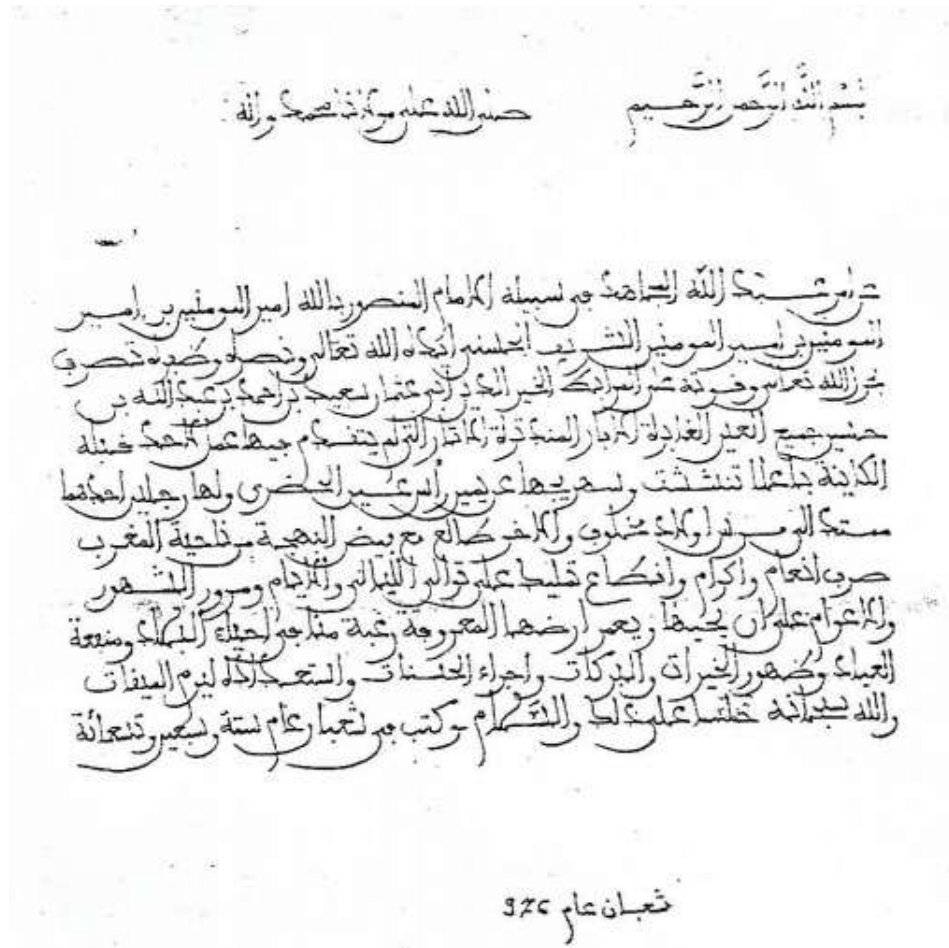 بسم الله الرحمن الرحيم صلى الله على مولانا محمد وآله
عبد الله المجاهد في سبيله الامام المنصور بالله امير المومنين بن امير
المومنين بن امير المومنين الشريف الحسني ايده الله تعالى ونصره
بحول الله تعالى وقوته على المرابط الخير الدين ابي عثمان سعيد بن احمد بن عبد الله بن
حسين جميع العين الابار المندثرة التي لم يتقدم فيها عمل لاحد قبله
الكاينة باعلا وسهريجها عن يمين رأس عين الحضري ولها احدهما
من اولاد مخلوف والاخر طالع مع بعض النهجة من ناحية المغرب
انعام واكرام واقطاع على توالي الليالي والايام ومرور الشهور
والاعوام على ان يحييها ويعمر ارضها المعروفة رغبة منا في احياء البلاد ومنفعة
العباد وظهور الخيرات والبركات واجراء الحسنات والستعدادا ليوم الميقات
والله سبحانه والسلام وكتب في شعبان عام ستة وسبعين وتسعمائة
شعبان عام 976